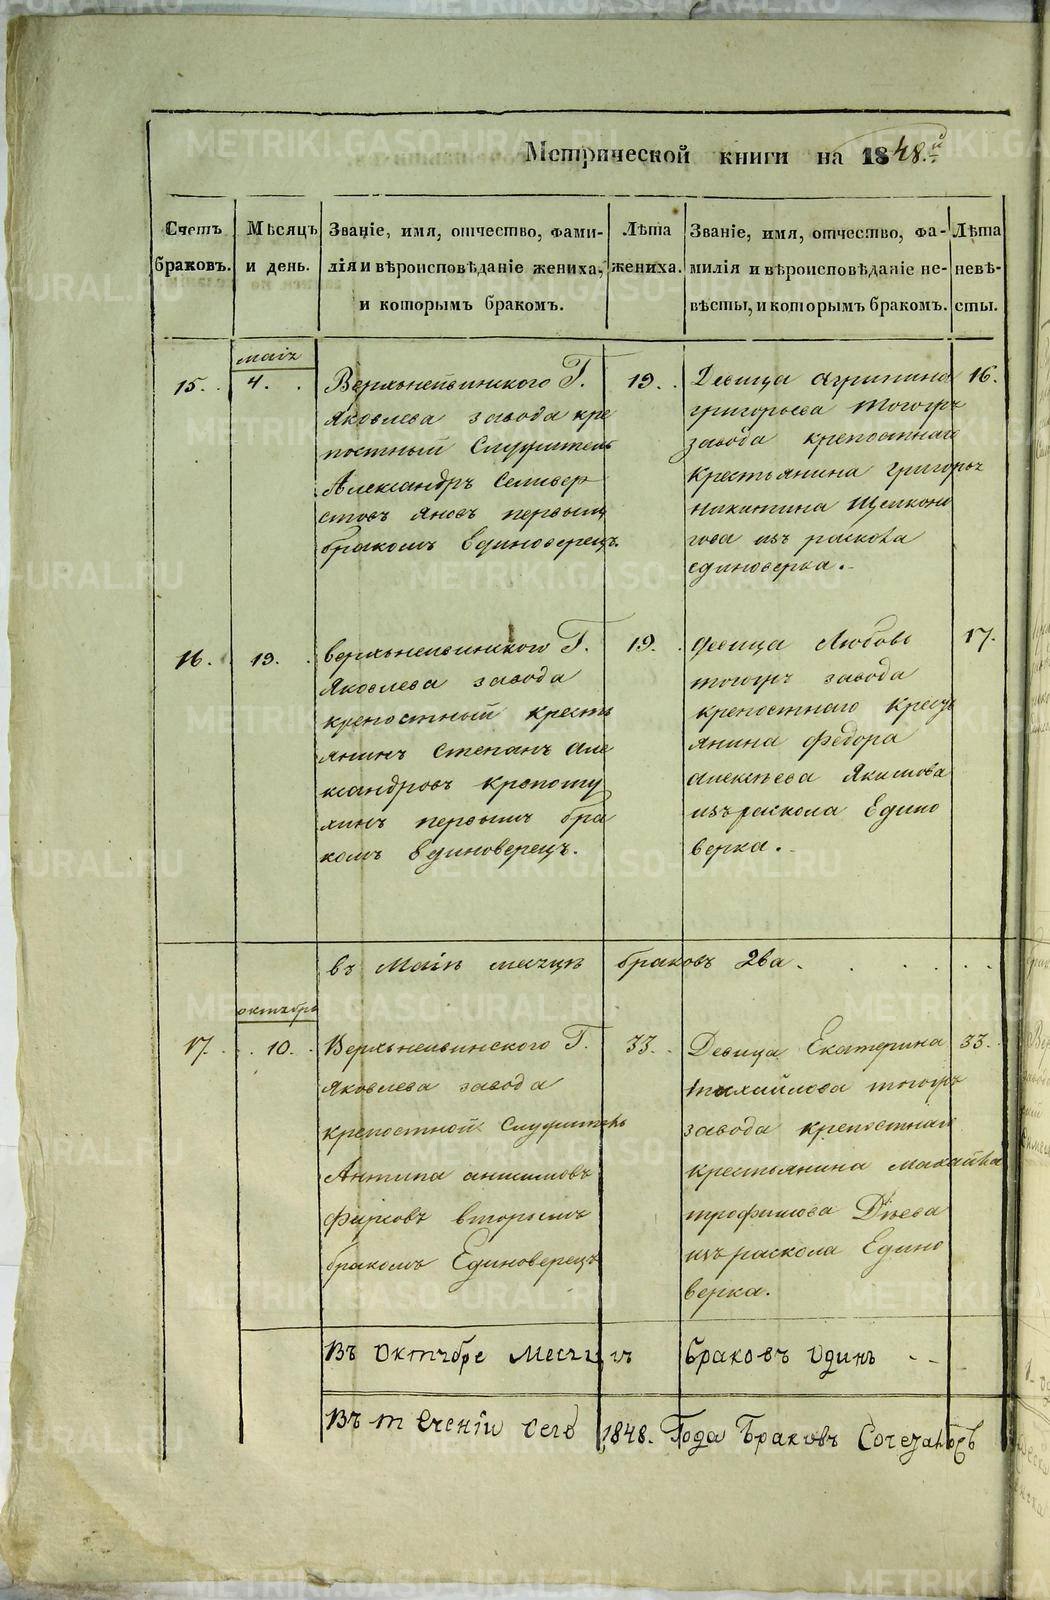 Метрической книги на 1848.й
Счетъ браковъ.
Мѣсяцъ и день.
Званіе, имя, отчество, фами-
лія и вѣроисповѣданіе жениха,
и которымъ бракомъ.
Лѣта
жениха.
Званіе, имя, отчество, фа-
милія и вѣроисповѣданіе не-
вѣсты, и которымъ бракомъ.
Лѣта
невѣ-
сты.
15.
4.
Верхънейвинского Г.
Яковлева завода кре
постный Служитель
Александръ Селивер
стовъ Яновъ первымъ
бракомъ Единоверецъ.
19.
Девица Агрипина
григорьева тогожъ
завода крепостнаго
Крестьянина григорья
никитина
изъ раскола
единоверка.
16.
16.
19.
Верхънейвинского Г.
Яковлева завода
крепостный крестъ
янинъ Степанъ але
ксандровъ Кропоту
хинъ первымъ бра
комъ Единоверецъ.
19.
Девица Любовь
тогожъ завода
крепостнаго Кресть
янина Федора
алексеева Якимова
изъ раскола Едино
верка.
17.
въ Маіи месяце браковъ два.
октябрь
17.
10.
Верхънейвинского Г.
Яковлева завода
крепостной Служитель
Антипа анисимовъ
Фирсовъ вторымъ
бракомъ Единоверецъ
33.
Девица Екатерина
михайлова тогожъ
завода крепостнаго
крестьянина михайла
трофимова
изъ раскола Едино
верка.
33.
Въ Октябре месяце Браковъ одинъ
Въ течении сего 1848. Года Браковъ
METRIKI.GASO-URAL.RU